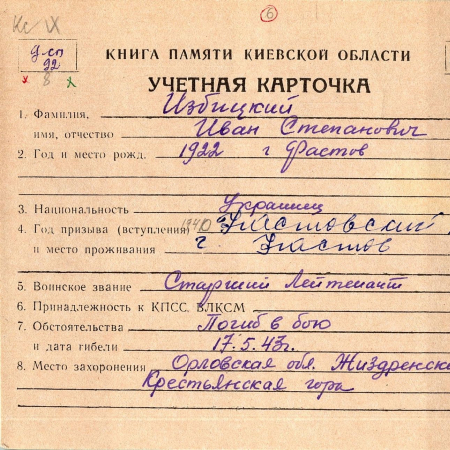 Кс IX
6
9 сп
92
х 8 х
КНИГА ПАМЯТИ КИЕВСКОЙ ОБЛАСТИ
УЧЕТНАЯ КАРТОЧКА
1. Фамилия, Избицкий
имя, отчество Иван Степанович
2. Год и место рожд. 1922 г Фастов
3. Национальность Украинец
4. Год призыва (вступления) 1940 Фастовский
и место проживания г Фастов
5. Воинское звание Старший Лейтенант
6. Принадлежность к КПСС, ВЛКСМ
7. Обстоятельства Погиб в бою
и дата гибели 17.5.43г.
8. Место захоронения Орловская обл. Жиздренск
Крестьянская гора